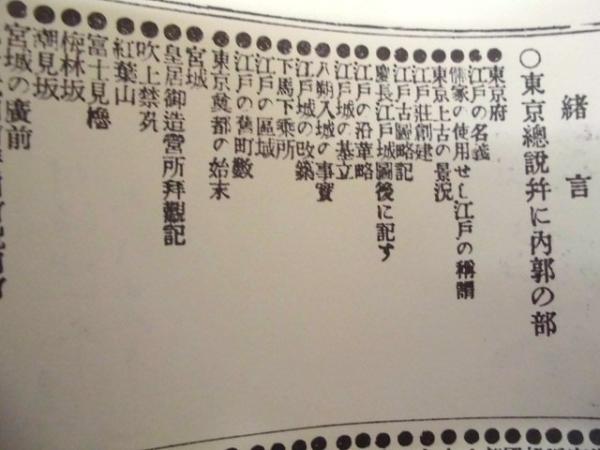 緒言
○東京總說幷に內郭の部
●東京府
●江戸の名義
●儒家の使用せし江戸の稱謂
●東京上古の景況
●江戸莊創建
●江戸古圖略記
●慶長江戸城圖後に記す
●江戸の沿革略
●江戸城の基立
●八朔入城の事實
●江戸城の改築
●下馬下乘所
●江戸の區域
●江戸の舊町數
●東京奠都の始末
●宮城
●皇居御造營所拜觀記
●吹上禁苑
●紅葉山
●富士見櫓
●梅林坂
●潮見坂
●宮城の廣前